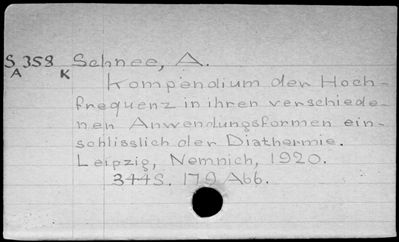 S 358 Schnee, A.
A K
Kompendium der Hoch-
frequenz in ihren verschiede-
nen Anwendungsformen ein-
schlisslich der Diathermie.
Leipzig, Nemnich, 1920.
344S. 179 Abb.